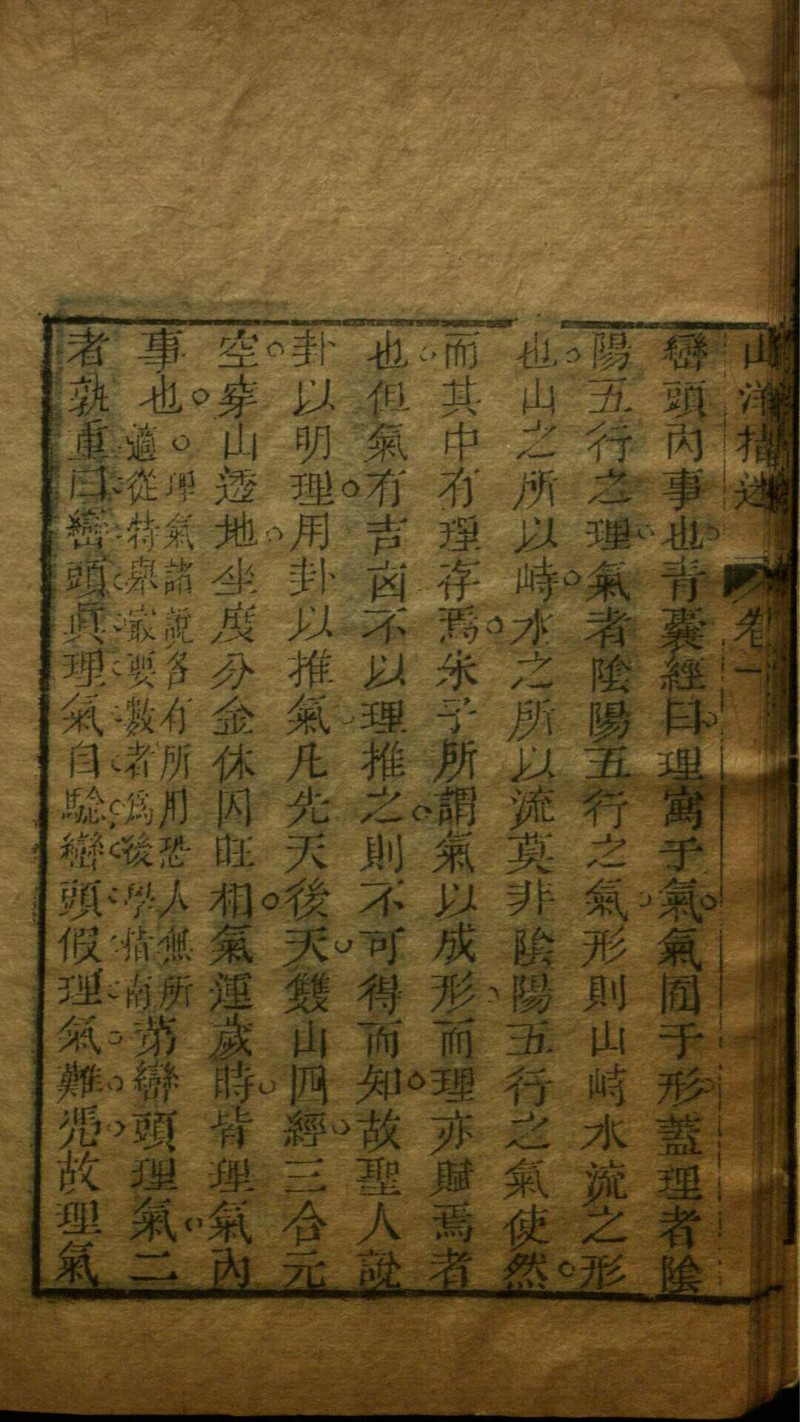 山洋指迷 卷一
巒頭內事也青囊經曰理寓于氣氣囿于形蓋理者陰
陽五行之理氣者陰陽五行之氣形則山峙水流之形
也山之所以峙水之所以流莫非陰陽五行之氣使然
而其中有理存焉朱子所謂氣以成形而理亦賦焉者
也但氣有吉凶不以理推之則不可得而知故聖人說
卦以明理用卦以推氣凡先天後天雙山四經三合元
空穿山透地坐度分金休囚旺相氣運歲時皆理氣內
事也。理氣諸說各有所用恐人無所適從特舉最要數者為後學指南第巒頭理氣二
者孰重曰巒頭眞理氣自騐巒頭假理氣難凴故理氣